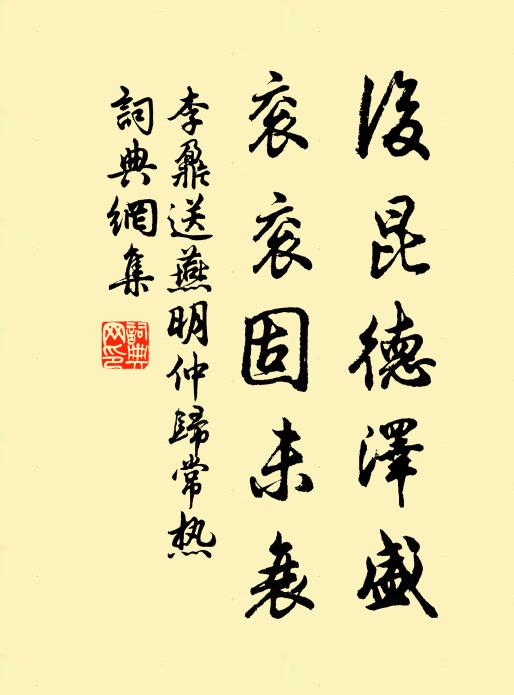 後昆德澤盛
衮衮固未衰
李鼐送燕明仲歸常熱
詞典網集
詞典網印